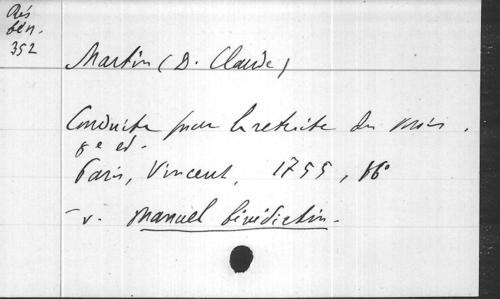 Rés
bén.
352
Martin (D. Claude)
Conduite pour la retraite du mois.
8e ed.
Paris, Vincent, 1755, 16°
- v. manuel bénédictin.